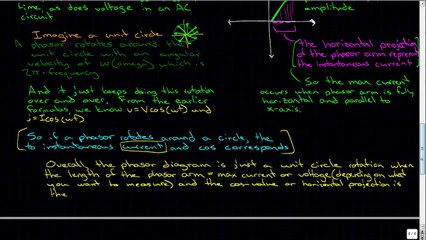 time, as does voltage in an AC
circuit
amplitude
Imagine a unit circle
A phasor rotates around the
unit circle with an angular
velocity of ω(omega) which is
2π·frequency
the horizontal projection
of the phasor arm represent
the instantaneous current
And it just keeps doing this rotation
over and over. From the earlier
formulas we know v=Vcos(ωt) and
i=Icos(ωt)
So the max current
occurs when phasor arm is fully
horizontal and parallel to
x-axis.
So if a phasor rotates around a circle, the
to instantaneous current and cos corresponds
Overall, the phasor diagram is just a unit circle rotation when
the length of the phasor arm = max current or voltage (depending on what
you want to measure) and the cos-value or horizontal projection is
the
4/4